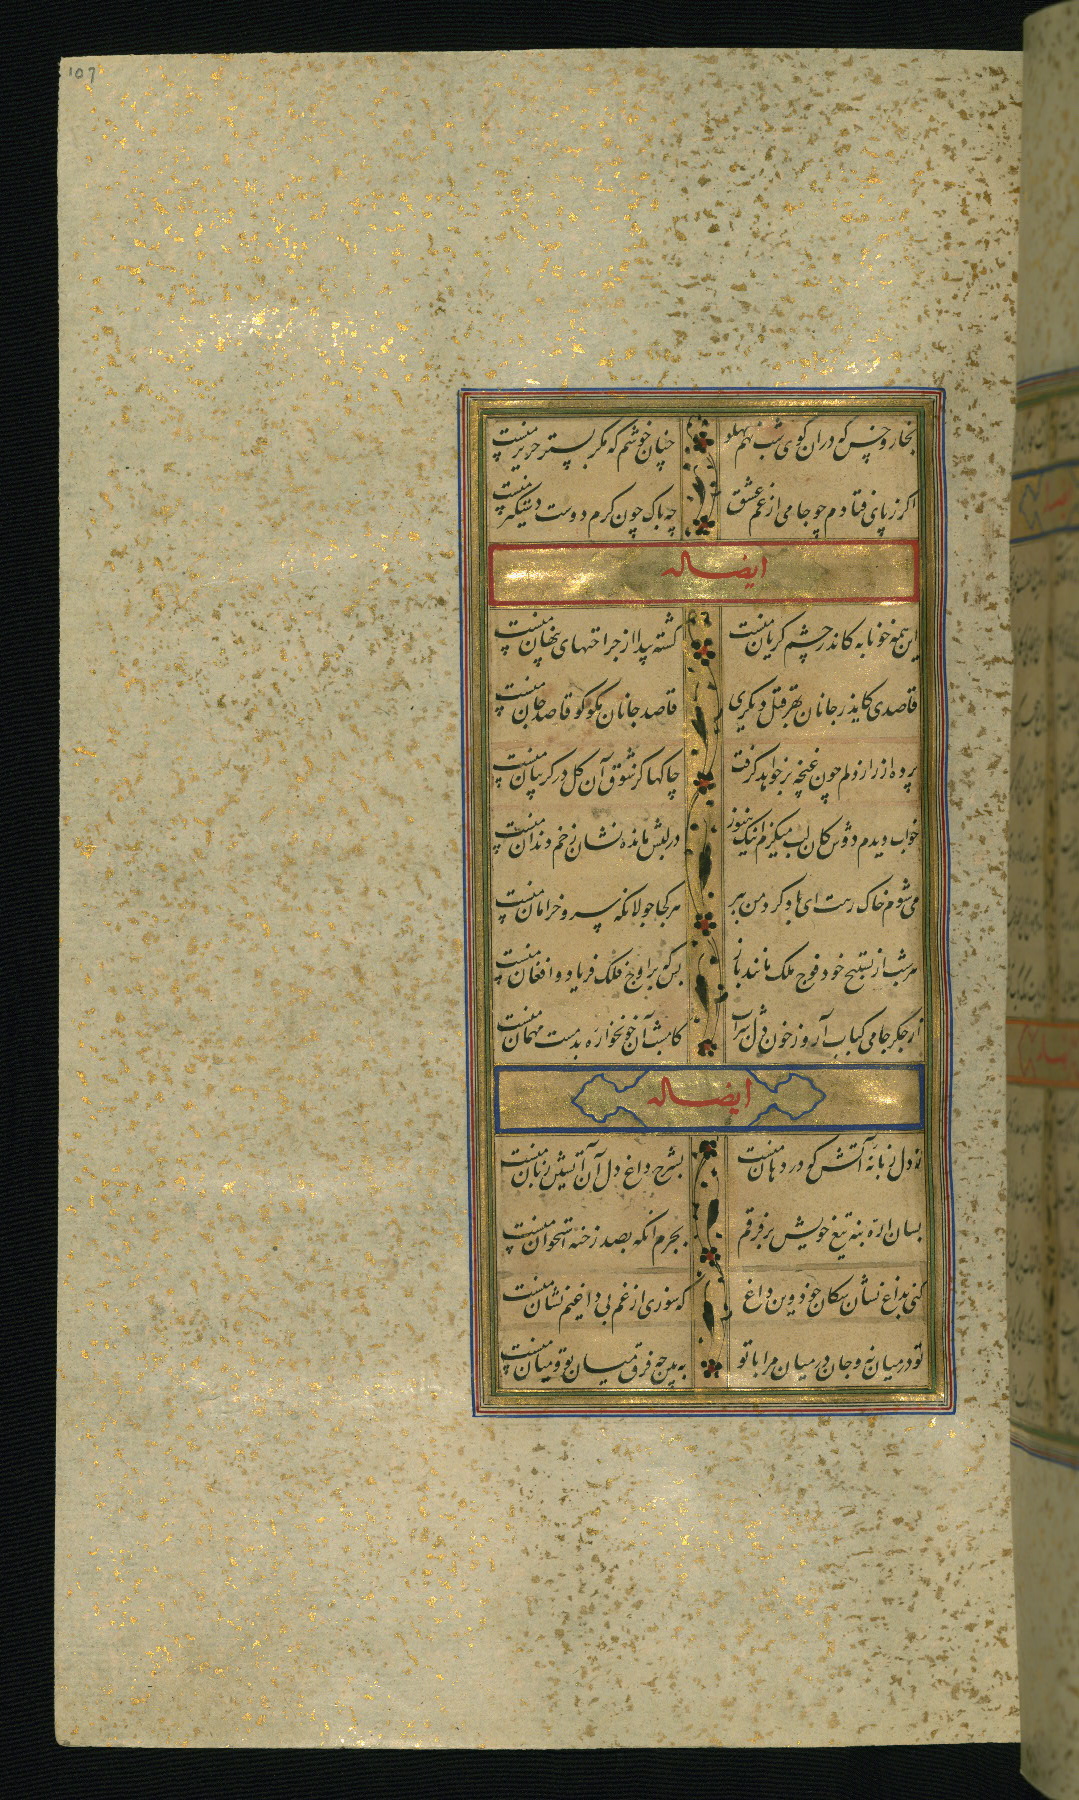 107
بخار و خس که دران کوی شب نهم پهلو چنان خوشم که مکر بستر حریر منست
اکر ز پای فتادم چو جامی از غم عشق چه باک چون کرم دوست دستکیر منست
ایضا له
این همه خونابه کاندر چشم کریان منست کشته پیدا از جراحتهای پنهان منست
قاصدی کاید ز جانان بهر قتل دیکری قاصد جانان مکو کو قاصد جان منست
پرده از راز دلم چون غنچه بر خواهد کرفت چاکها کز شوق آن کل در کریبان منست
خواب دیدم دوش کان لب میکزم اینک هنوز در لبش مانده نشان زخم دندان منست
می شوم خاک رهت ای باد کرد من ببر هر کجا جولانکه سرو خرامان منست
هر شب از تسبیح خود فوج ملک مانند باز بس که بر اوج فلک فریاد و افغان منست
از جکر جامی کباب آر و ز خون دل شراب کامشب آن خونخواره بدمست مهمان منست
ایضا له
ز دل زبانه آتش که در دهان منست بشرح داغ دل آن آتشین زبان منست
بسان اره بنه تیغ خویش بر فرقم بجرم انکه بصد رخنه استخوان منست
کنی بداغ نشان سکان خود وین داغ که سوزی از غم بی داغیم نشان منست
تو در میان نه و جان در میان مرا با تو به بین چه فرق میان تو و میان منست